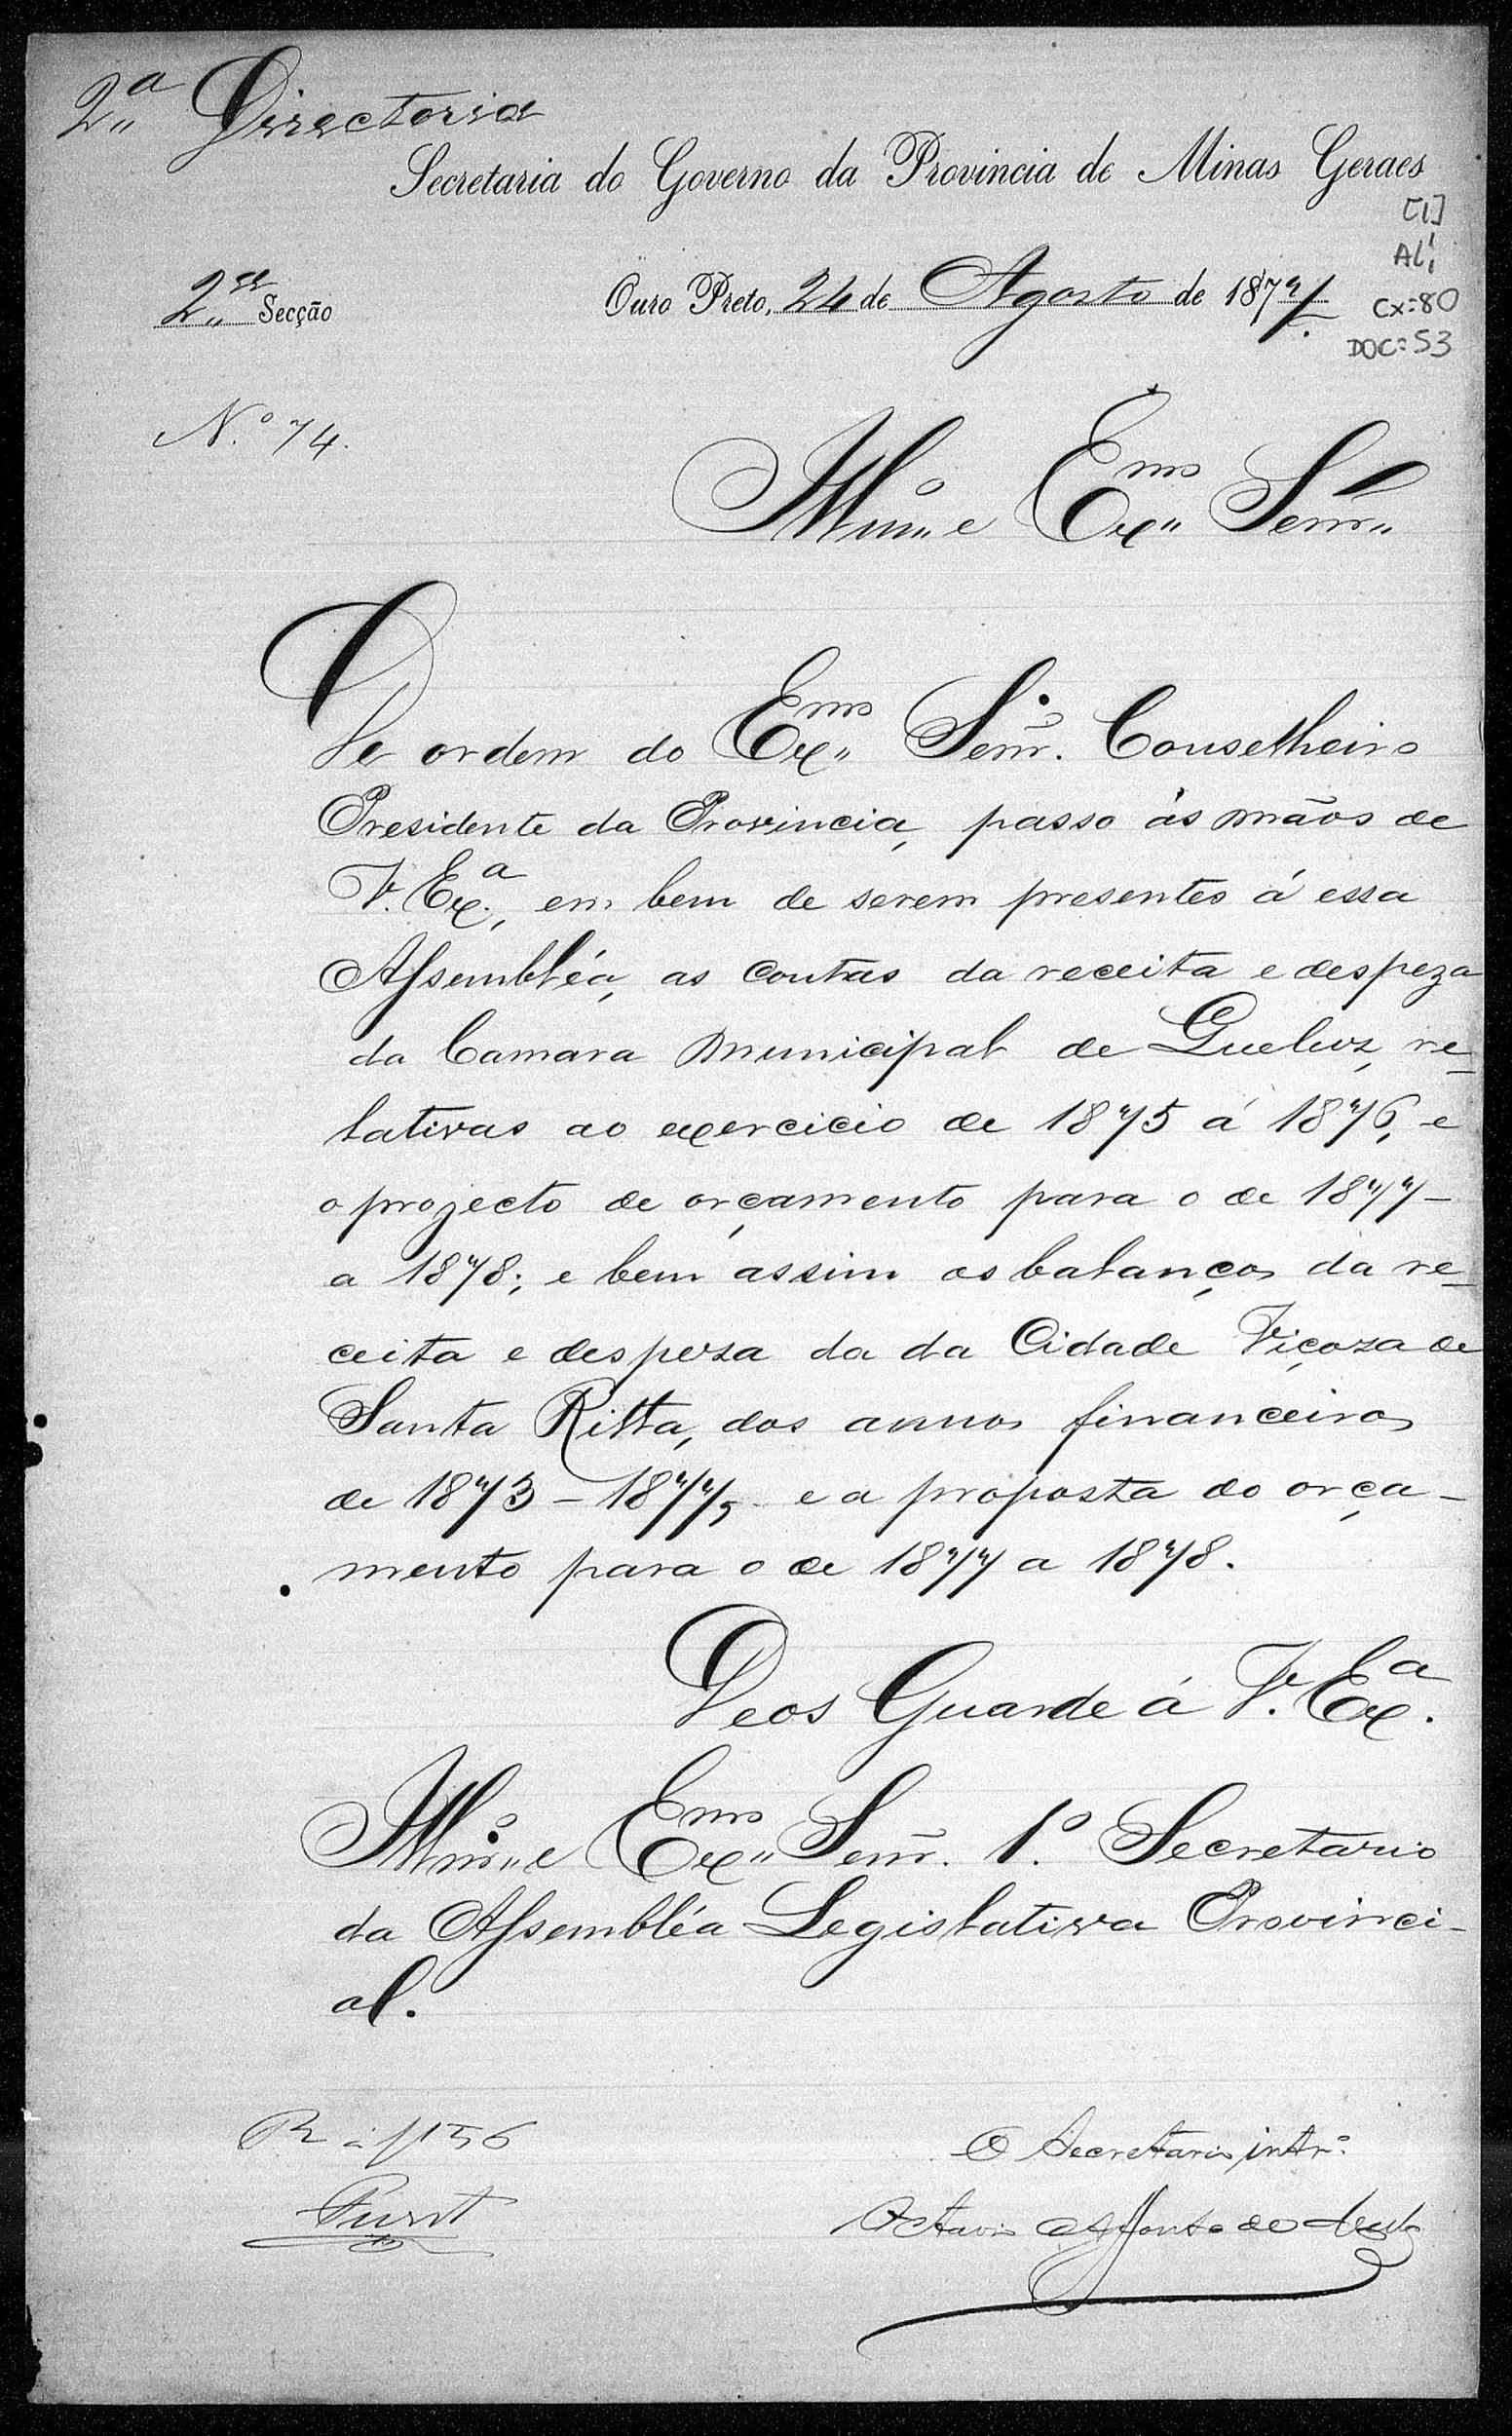 2.ª Directoria
Secretaria do Governo da Provincia de Minas Geraes
[1]
AL1
2.ª Secção
Ouro Preto, 24 de Agosto de 1877.
CX=80
DOC=53
N.º 74.
Illm.º e Exm.º Senr.
De ordem do Exm.º Senr. Conselheiro
Presidente da Provincia, passo ás mãos de
V. Ex.ª, em bem de serem presentes á essa
Assembléa, as contas da receita e despeza
da Camara Municipal de Queluz, re-
lativas ao exercicio de 1875 á 1876, e
o projecto de orçamento para o de 1877-
a 1878; e bem assim os balanços da re-
ceita e despeza da da Cidade Viçoza de
Santa Ritta, dos annos financeiros
de 1873 - 1877, e a proposta do orça-
mento para o de 1877 a 1878.
Deos Guarde á V. Ex.ª
Illm.º e Exm.º Senr. 1.º Secretario
da Assembléa Legislativa Provinci-
al.
R a f 156
O Secretario intr.º
Octavio Affonso de